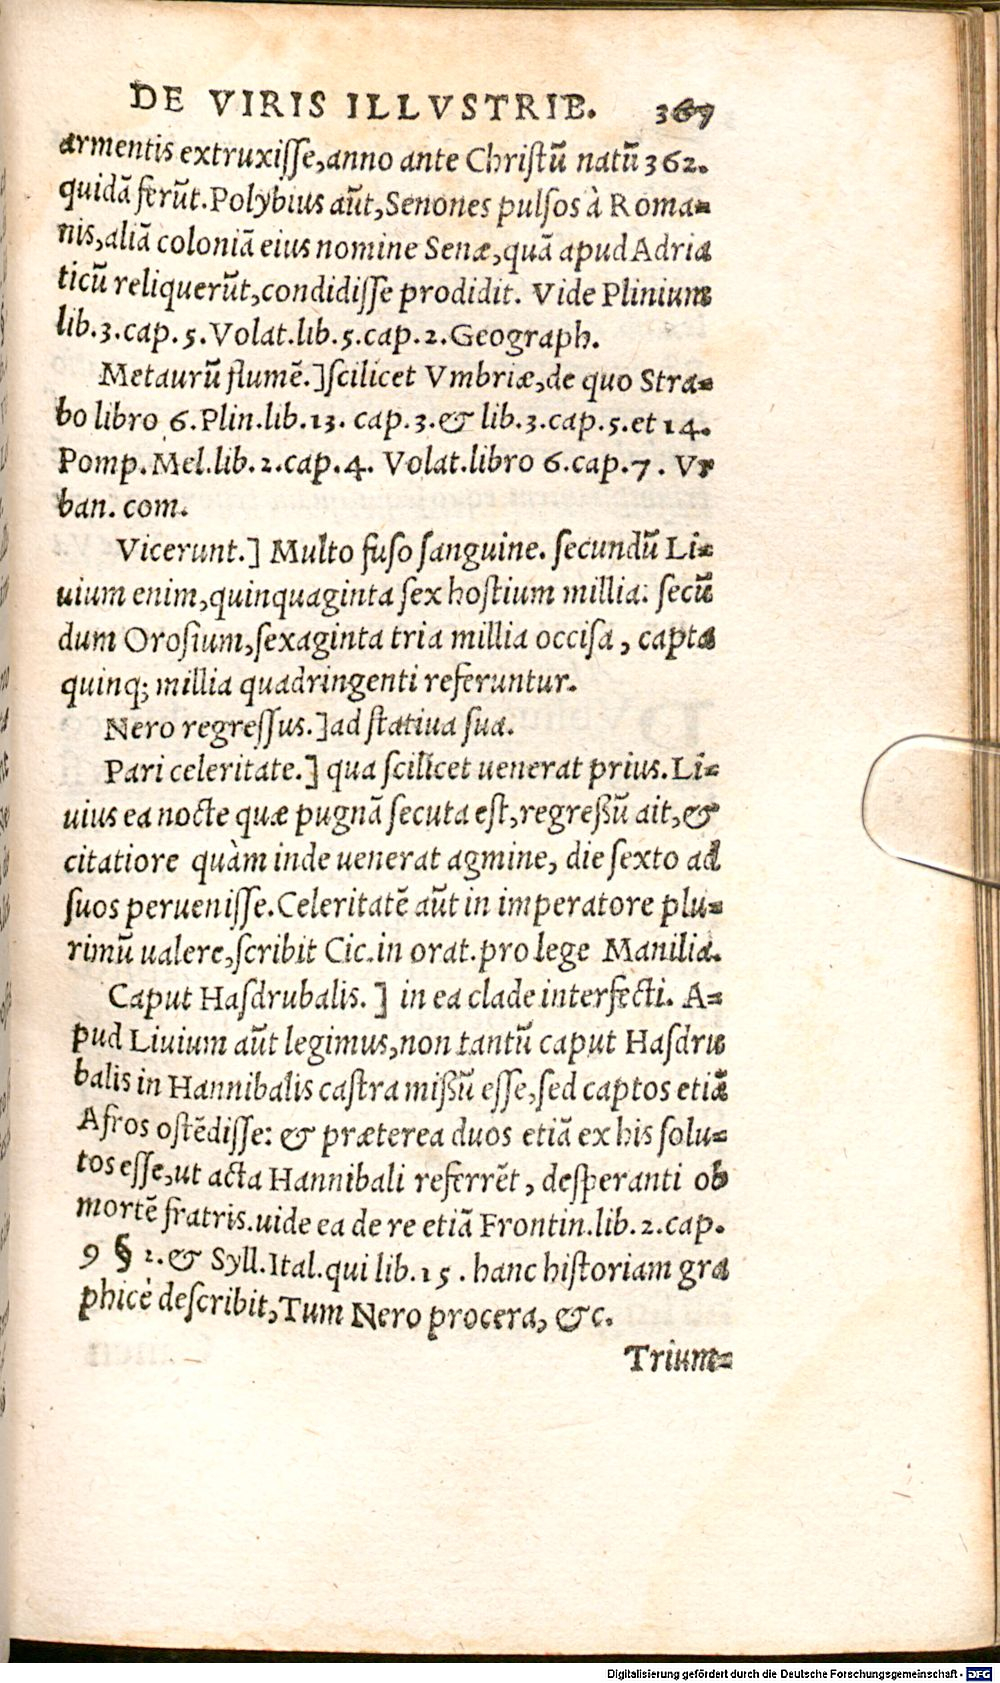 DE VIRIS ILLVSTRIB. 367
armentis extruxiſſe,anno ante Chriſtū natū 362.
quidā ferūt.Polybius aūt,Senones pulſos à Roma-
nis,aliā coloniā eius nomine Senæ,quā apud Adria
ticū reliquerūt,condidiſſe prodidit. Vide Plinium
lib.3.cap.5.Volat.lib.5.cap.2.Geograph.
Metaurū flumē.]ſcilicet Vmbriæ,de quo Stra-
bo libro 6.Plin.lib.13.cap.3.& lib.3.cap.5.et 14.
Pomp.Mel.lib.2.cap.4. Volat.libro 6.cap.7. Vr
ban. com.
Vicerunt.] Multo fuſo ſanguine. ſecundū Li-
uium enim,quinquaginta ſex hoſtium millia: ſecū
dum Oroſium,ſexaginta tria millia occiſa, capta
quinq; millia quadringenti referuntur.
Nero regreſſus.]ad ſtatiua ſua.
Pari celeritate.] qua ſcilicet uenerat prius.Li-
uius ea nocte quæ pugnā ſecuta eſt,regreßū ait,&
citatiore quàm inde uenerat agmine, die ſexto ad
ſuos perueniſſe.Celeritatē aūt in imperatore plu-
rimū ualere,ſcribit Cic.in orat.pro lege Manilia.
Caput Haſdrubalis.] in ea clade interfecti. A-
pud Liuium aūt legimus,non tantū caput Haſdru
balis in Hannibalis caſtra mißū eſſe,ſed captos etiā
Afros oſtēdiſſe: & præterea duos etiā ex his ſolu-
tos eſſe,ut acta Hannibali referrēt, deſperanti ob
mortē fratris.uide ea de re etiā Frontin.lib.2.cap.
9 § 2.& Syll.Ital.qui lib.15. hanc hiſtoriam gra
phicè deſcribit,Tum Nero procera, &c.
Trium-
Digitalisierung gefördert durch die Deutsche Forschungsgemeinschaft - DFG